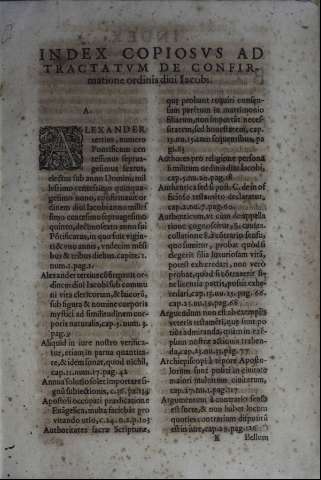 INDEX COPIOSVS AD
TRACTATVM DE CONFIR-
matione ordinis diui Iacobi.
A.
ALEXANDER
tertius, numero
Pontificum cen
tesimus septua-
gesimus sextus,
electus sub anno Domini, mil
lesimo centesimo quinqua-
gesimo nono, confirmauit or
dinem diui Iacobi anno milles
simo centesimo septuagesimo
quinto, decimosexto anno sui
Pontificatus, in quo fuit viginti
& vno annis, vndecim mesi
bus & tribus diebus. capite. 1.
num. 1. pag. 1.
Alexander tertius cōfirmauit or
dinem diui Iacobi sub commu
ni vita clericorum, & laicorū,
sub signis & nomine corporis
mystici ad similitudinem cor
poris naturalis, cap. 5. num. 3.
pag. 9
Aliquid in iure nostro verifica-
tur, etiam in parua quantita-
te, & idem sonat, quod nichil,
cap. 11. num. 17. pag. 42
Annus solutio solet importare si
gnū subiectionis, c. 36. pa. 134
Apostoli occupati prædicatione
Euāgelica, multa faciebāt pro
vitando otio, c. 24. n. 2. p. 103
Authoritates sacræ Scripturæ,
quæ probant requiri consen-
sum parētum in matrimonio
filiarum, non important neces
sitatem, sed honestatem, cap.
13. nu. 15. cum sequentibus, pa-
gi. 83
Authores pro religione persona
li militum ordinis diui Iacobi,
cap. 5. nu. 22. pag. 18
Authentica sed si post. C. de in of
ficioso testamēto declaratur,
cap. 2. nu. 7. pag. 60.
Authenticum, vt cum de appella
tione cognoscitur, &. causas.
collatione 8. Postrario sensu,
quo sumitur, probat quòd si
degerit filia luxuriosam vitā,
potest exheredari, non verò
probat, quòd si cōtraxerit si
ne licentia patris, possit exhe-
redari, cap. 13. nu. 13. pag. 66.
cap. 25. nu. 13. pag. 68
Arguendum non est ab exemplis
veteris testamēti, quæ sunt po
tiùs admiranda, quàm in exē-
plum nostræ actionis trahen-
da, c. 13. nu. 33. pag. 77
Archiepiscopi à tēpore Aposto-
lorum sunt positi in ciuitate
maiori multarum ciuitatum,
cap. 17. nu. 1. pag. 117
Argumentum à contrario sensu
est forte, & non habet locum
quoties contrarium disponitū
est in iure, cap. 29. pag. 126
K Bellum